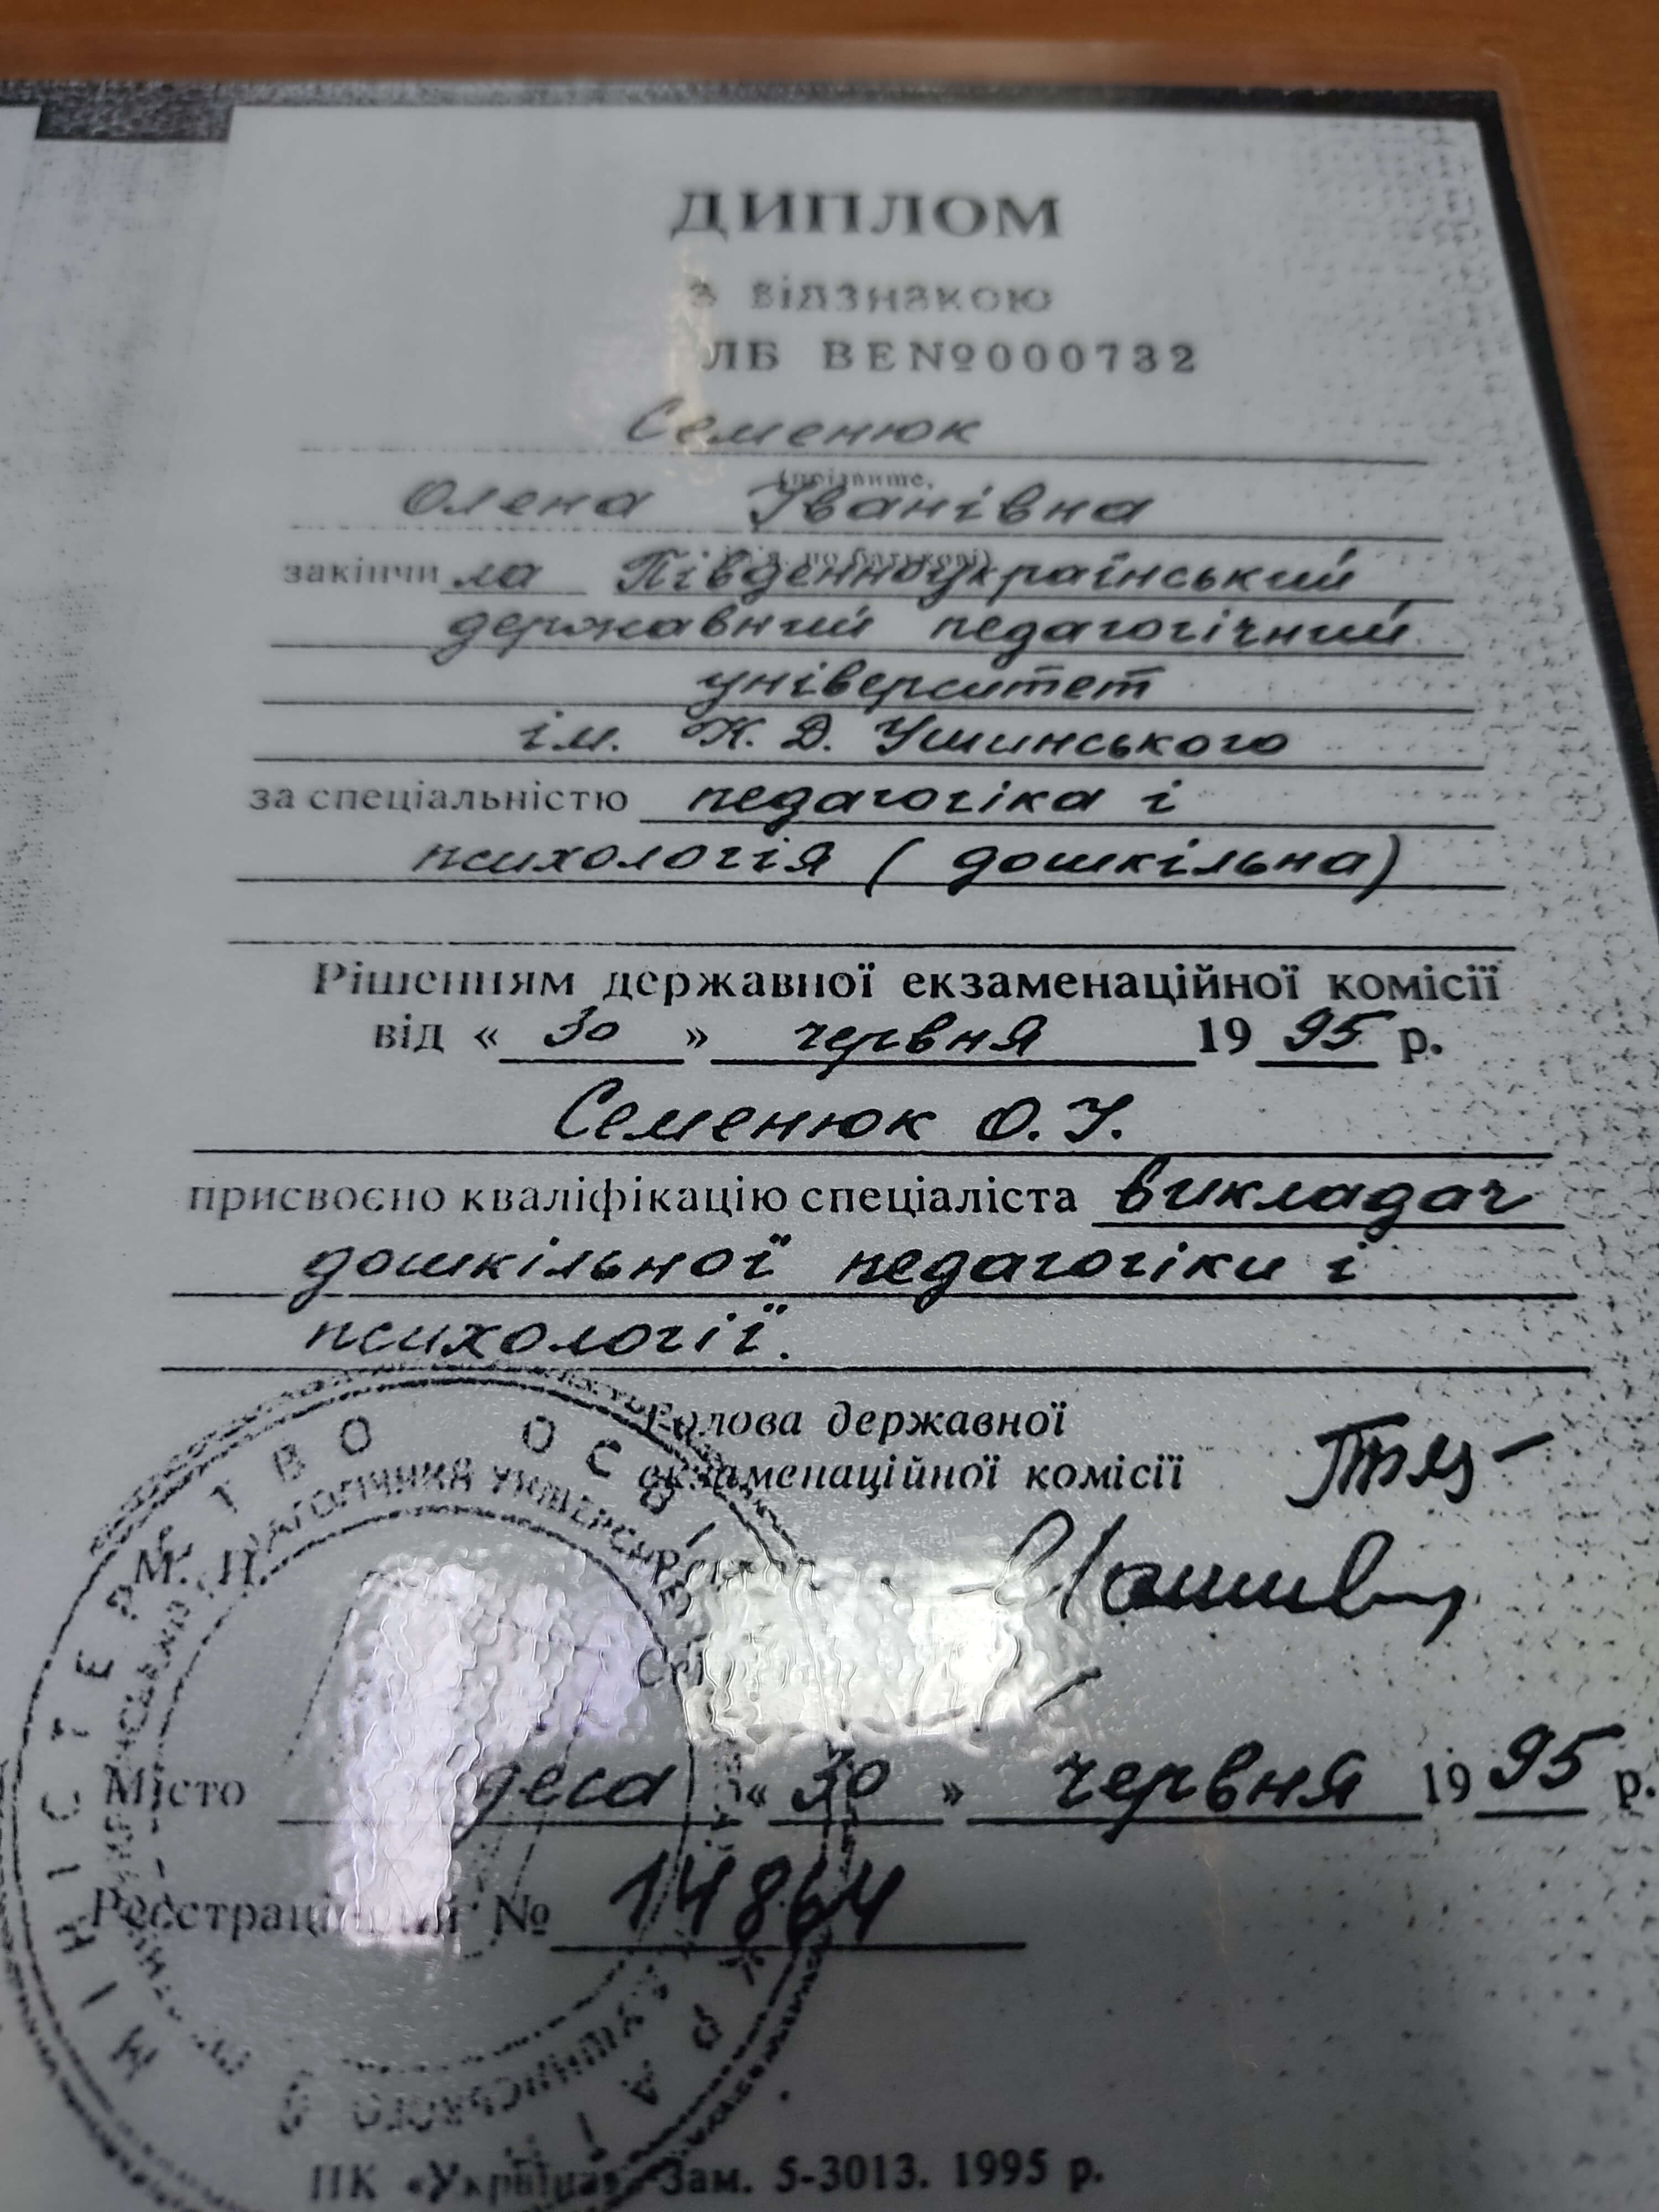 ДИПЛОМ
з відзнакою
ЛБ ВЕ№000732
Семенюк
(прізвище,
Олена Іванівна
по батькові)
закінчила Південноукраїнський
державний педагогічний
університет
ім. К. Д. Ушинського
за спеціальністю педагогіка і
психологія (дошкільна)
Рішенням державної екзаменаційної комісії
від « 30 » червня 19 95 р.
Семенюк О. І.
присвоєно кваліфікацію спеціаліста викладач
дошкільної педагогіки і
психології.
Голова державної
екзаменаційної комісії
М. П.
Місто « 30 » червня 19 95 р.
№ 14864
МІНІСТЕРСТВО ОСВІ
ПЕДАГОГІЧНИЙ УНІВЕРСИТЕТ
УШИНСЬКОГО
ПК «Україна» Зам. 5-3013. 1995 р.